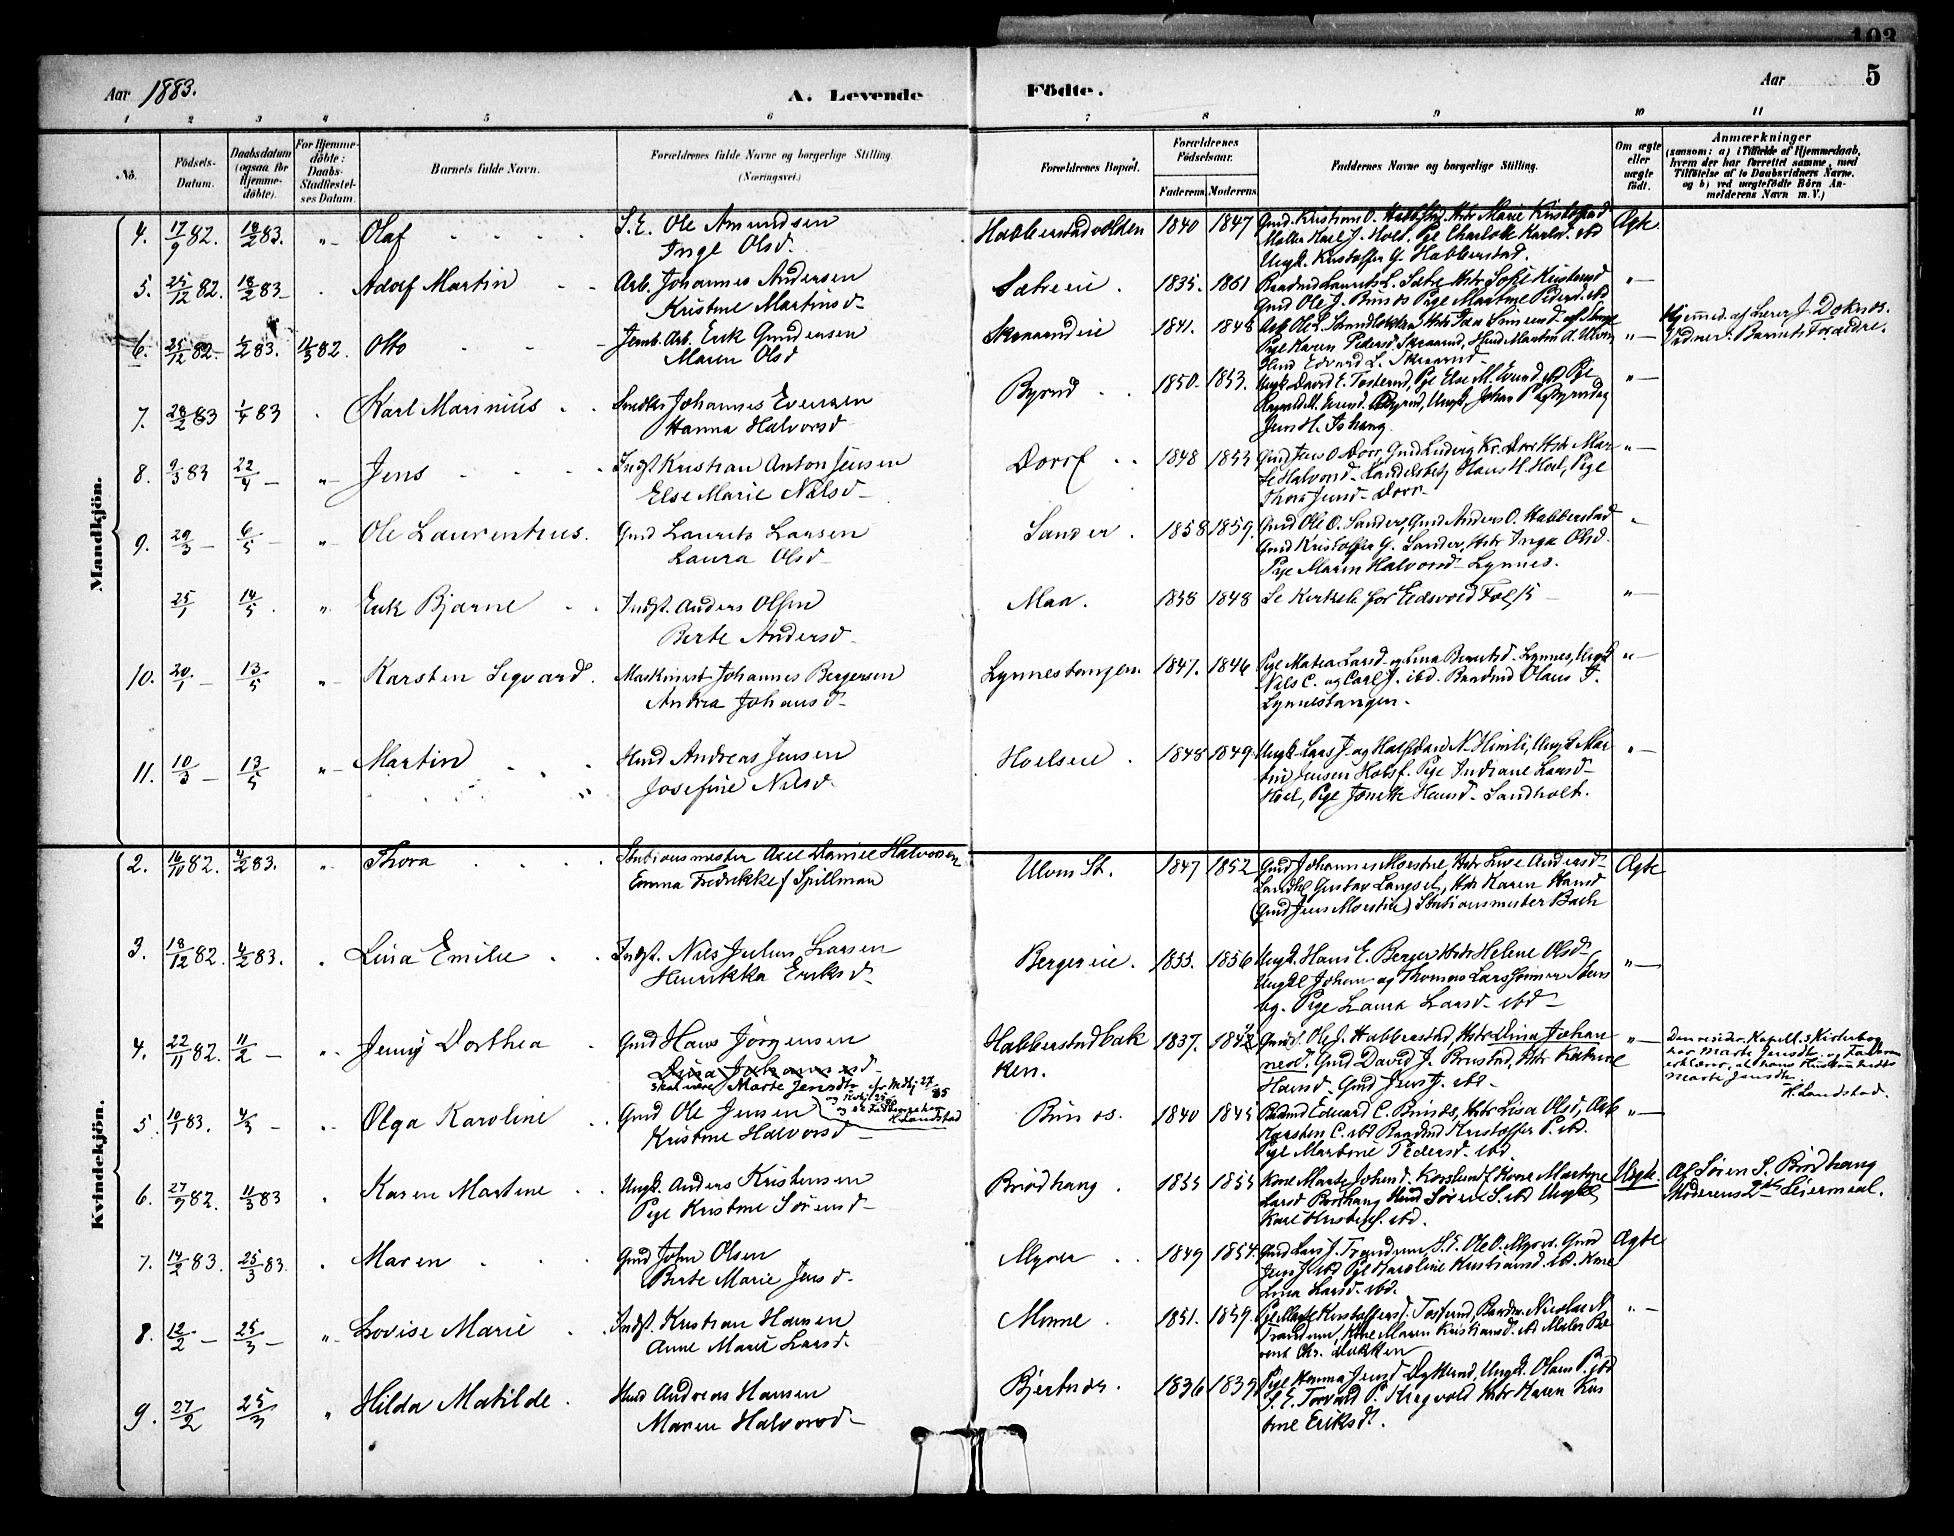 103
Aar 1883.
A. Levende
Födte.
Aar
5
1 2 3 4 5 6 7 8 9 10 11
No.
Födsels-
Datum.
Daabsdatum
(ogsaa for
Hjemme-
döbte).
For Hjemme-
döbte:
Daabs-
Stadfæstel-
ses Datum.
Barnets fulde Navn.
Forældrenes fulde Navne og borgerlige Stilling.
(Næringsvei.)
Forældrenes Bopæl.
Forældrenes
Födselsaar.
Faderens. Moderens.
Faddernes Navne og borgerlige Stilling.
Om ægte
eller
uægte
födt.
Anmærkninger
(saasom: a) i Tilfælde af Hjemmedaab,
hvem der har forrettet samme, med
Tilföielse af to Daabsvidners Navne.
og b) ved uægtefödte Börn An-
melderens Navn m. V.)
Mandkjön.
4. 17/9 82. 18/2 83. " Olaf S. E. Ole Amundsen
Inge Olsd.
Habberstadvolden 1840 1847 Gmd. Kristian O. Habbstd. Hstr Marie Kristofsd
Möller Karl J. Hoel. Pge Charlotte Karlsd. ibd
Ungk. Kristoffer G. Habberstad. Ægte
5. 25/12 82. 18/2 83 Adolf Martin Arb. Johannes Andersen
Kristine Martinsd.
Sætreeie 1835. 1861 Baadmd Laurits L. Sætre Hstr Sofie Kristensd
Gmd Ole J. Bunæs Pige Martine Pedersd. ibd "
6. 25/12 82 2 83. 11/3 82. Otto Jernb. Arb. Erik Gundersen
Maren Olsd
Skraarudeie 1841. 1848
Pige Karen Pedersd Skraarud, Hmd Martin A. Ulvin
Hmd Edvard L. Skraarud "
Hjemmed. af Lærer J. Doknæs.
Vidner: Barnets Forældre.
7. 28/2 83 1/4 83 Karl Marinius Johannes Evensen
Hanna Halvorsd
Byrud 1850. 1853. Ungk. David E. Tosterud, Pge Else M. Evensd ibd Pge
Ragnhild M. Evensd. Byrud, Ungk. Johan P.
Jens H. Ishaug "
8. 9/3 83 22/4 " Jens Indst Kristian Anton Jensen
Else Marie Nilsd
Dorr 1848 1853 Gmd Jens O. Dorr, Gmd Ludvig Kr. Dorr Hstr Mar-
te Halvorsd. Handelsbetj Hans H. Hoel, Pige
Thora Jensd Dorr "
9. 29/3 6/5 " Ole Laurentius. Gmd Laurits Larsen
Laura Olsd
Sander 1858 1859. Gmd Ole O. Sander, Gmd Anders O. Habberstad
Gmd Kristoffer G. Sander, Hstr Inga Olsd.
Pige Maren Halvorsd Lynnes. "
25/1 14/5 " Erik Bjarne Indst. Anders Olsen
Berte Andersd
Maa. 1838 1848 Se Kirkeb. for Eidsvold Fol 15 "
10. 20/1 13/5 " Karsten Sigvard. Maskinist Johannes Bergersen
Andrea Johansd
Lynnestangen. 1847. 1846 Pge Matea Larsd og Lina Berntsd. Lynnes, Ungk
Nils C. og Carl J. ibd. Baadmd Olaus J.
Lynnestangen. "
11. 10/3 13/5 " Martin Hmd Andreas Jensen
Josefine Nilsd.
Hoelseie 1848 1849 Ungk Lars J. og Halfdan N. Himli, Ungk Mar-
tin Jensen Holsf. Pge Indiane Larsd
Hoel, Pge Jonette Hansd. Sandholt. "
Kvindekjön.
2. 16/10 82. 4/2 83. " Thora Stationsmester Axel Daniel Halvorsen
Emma Fredrikke f Spillman
Ulvin St. 1847 1852 Gmd Johannes Morstue, Hstr Live Andersd
Gustav Langset, Hstr Karen Hansd
(Gmd Jens Morstue) Stationsmester Bach Ægte
3. 18/12 82. 4/2 83. " Lina Emilie Indst. Nils Julius Larsen
Henrikka Eriksd
Bergereie. 1855. 1856 Ungk. Hans E. Berger Hstr Helene Olsd
Ungkl Johan og Thomas Larssönner Stens-
bg. Pige Laura Larsd ibd "
4. 22/11 82. 11/2 " Jenny Dorthea Gmd Hans Jörgensen
Dina Johannesd
skal være Marte Jensdtr
H. Landstad
Habberstadbak-
ken. 1837. 1842 Gmd. Ole J. Habberstad, Hstr Dina Johan-
nesd. Gmd David J. Brustad, Hstr Katrine
Hansd. Gmd Jens J. ibd. "
Den residr. Kapell.s Kirkebog
har Marte Jensdtr og Faderen
erklærer, at hans Hustru heder
Marte Jensdtr
H. Landstad.
5. 10/1 83. 4/3 " Olga Karoline Gmd Ole Jensen
Kristine Halvorsd
Bunæs. 1840 1845 Baadmd Edvard C. Bunæs, Hstr Lisa Olsd, Arb
Karsten C. ibd Baadmd Kristoffer P. ibd.
Pge Martine Pedersd. ibd "
6. 27/9 82. 11/3 83 " Karen Martine Ungk. Anders Kristensen
Pige Kristine Sörensd
Brödhang 1855 1855 Kone Marte Johansd. Korslund, Kone Martine
Larsd Brödhang Hmd Sören S. ibd Ungkl
Karl ibd. Uægte. Af Sören S. Brödhang
Moderens 2det Leiermaal.
7. 14/2 83. 25/3 83. Maren Gmd John Olsen
Berte Marie Jensd.
Myrer 1849 1854. Gmd Lars J. Trandum S. E. Ole O. Myrer. Gmd
Jens J. ibd Pge Karoline Kristiansd. ibd. Kone
Lina Larsd. ibd. Ægte
8. 12/2 25/3 " Lovise Marie Indst. Kristian Hansen
Anne Marie Larsd.
Minne 1851. 1859. Pge Marte Kristoffersd. Tosterud, Baadm. Nicolai N
Trandum, Kone Maren Kristiansd. ibd Maler Be-
rent Chr. Dokken "
9. 27/2 25/3 " Hilda Matilde Hmd Andreas Hansen
Maren Halvorsd
Bjertnæs. 1836 1839 Pige Hanna Jensd Dystrud Ungk. Olaus P. ibd
S. E. Torvald P. Kragvold Hstr Karen Kris-
tine Eriksd.